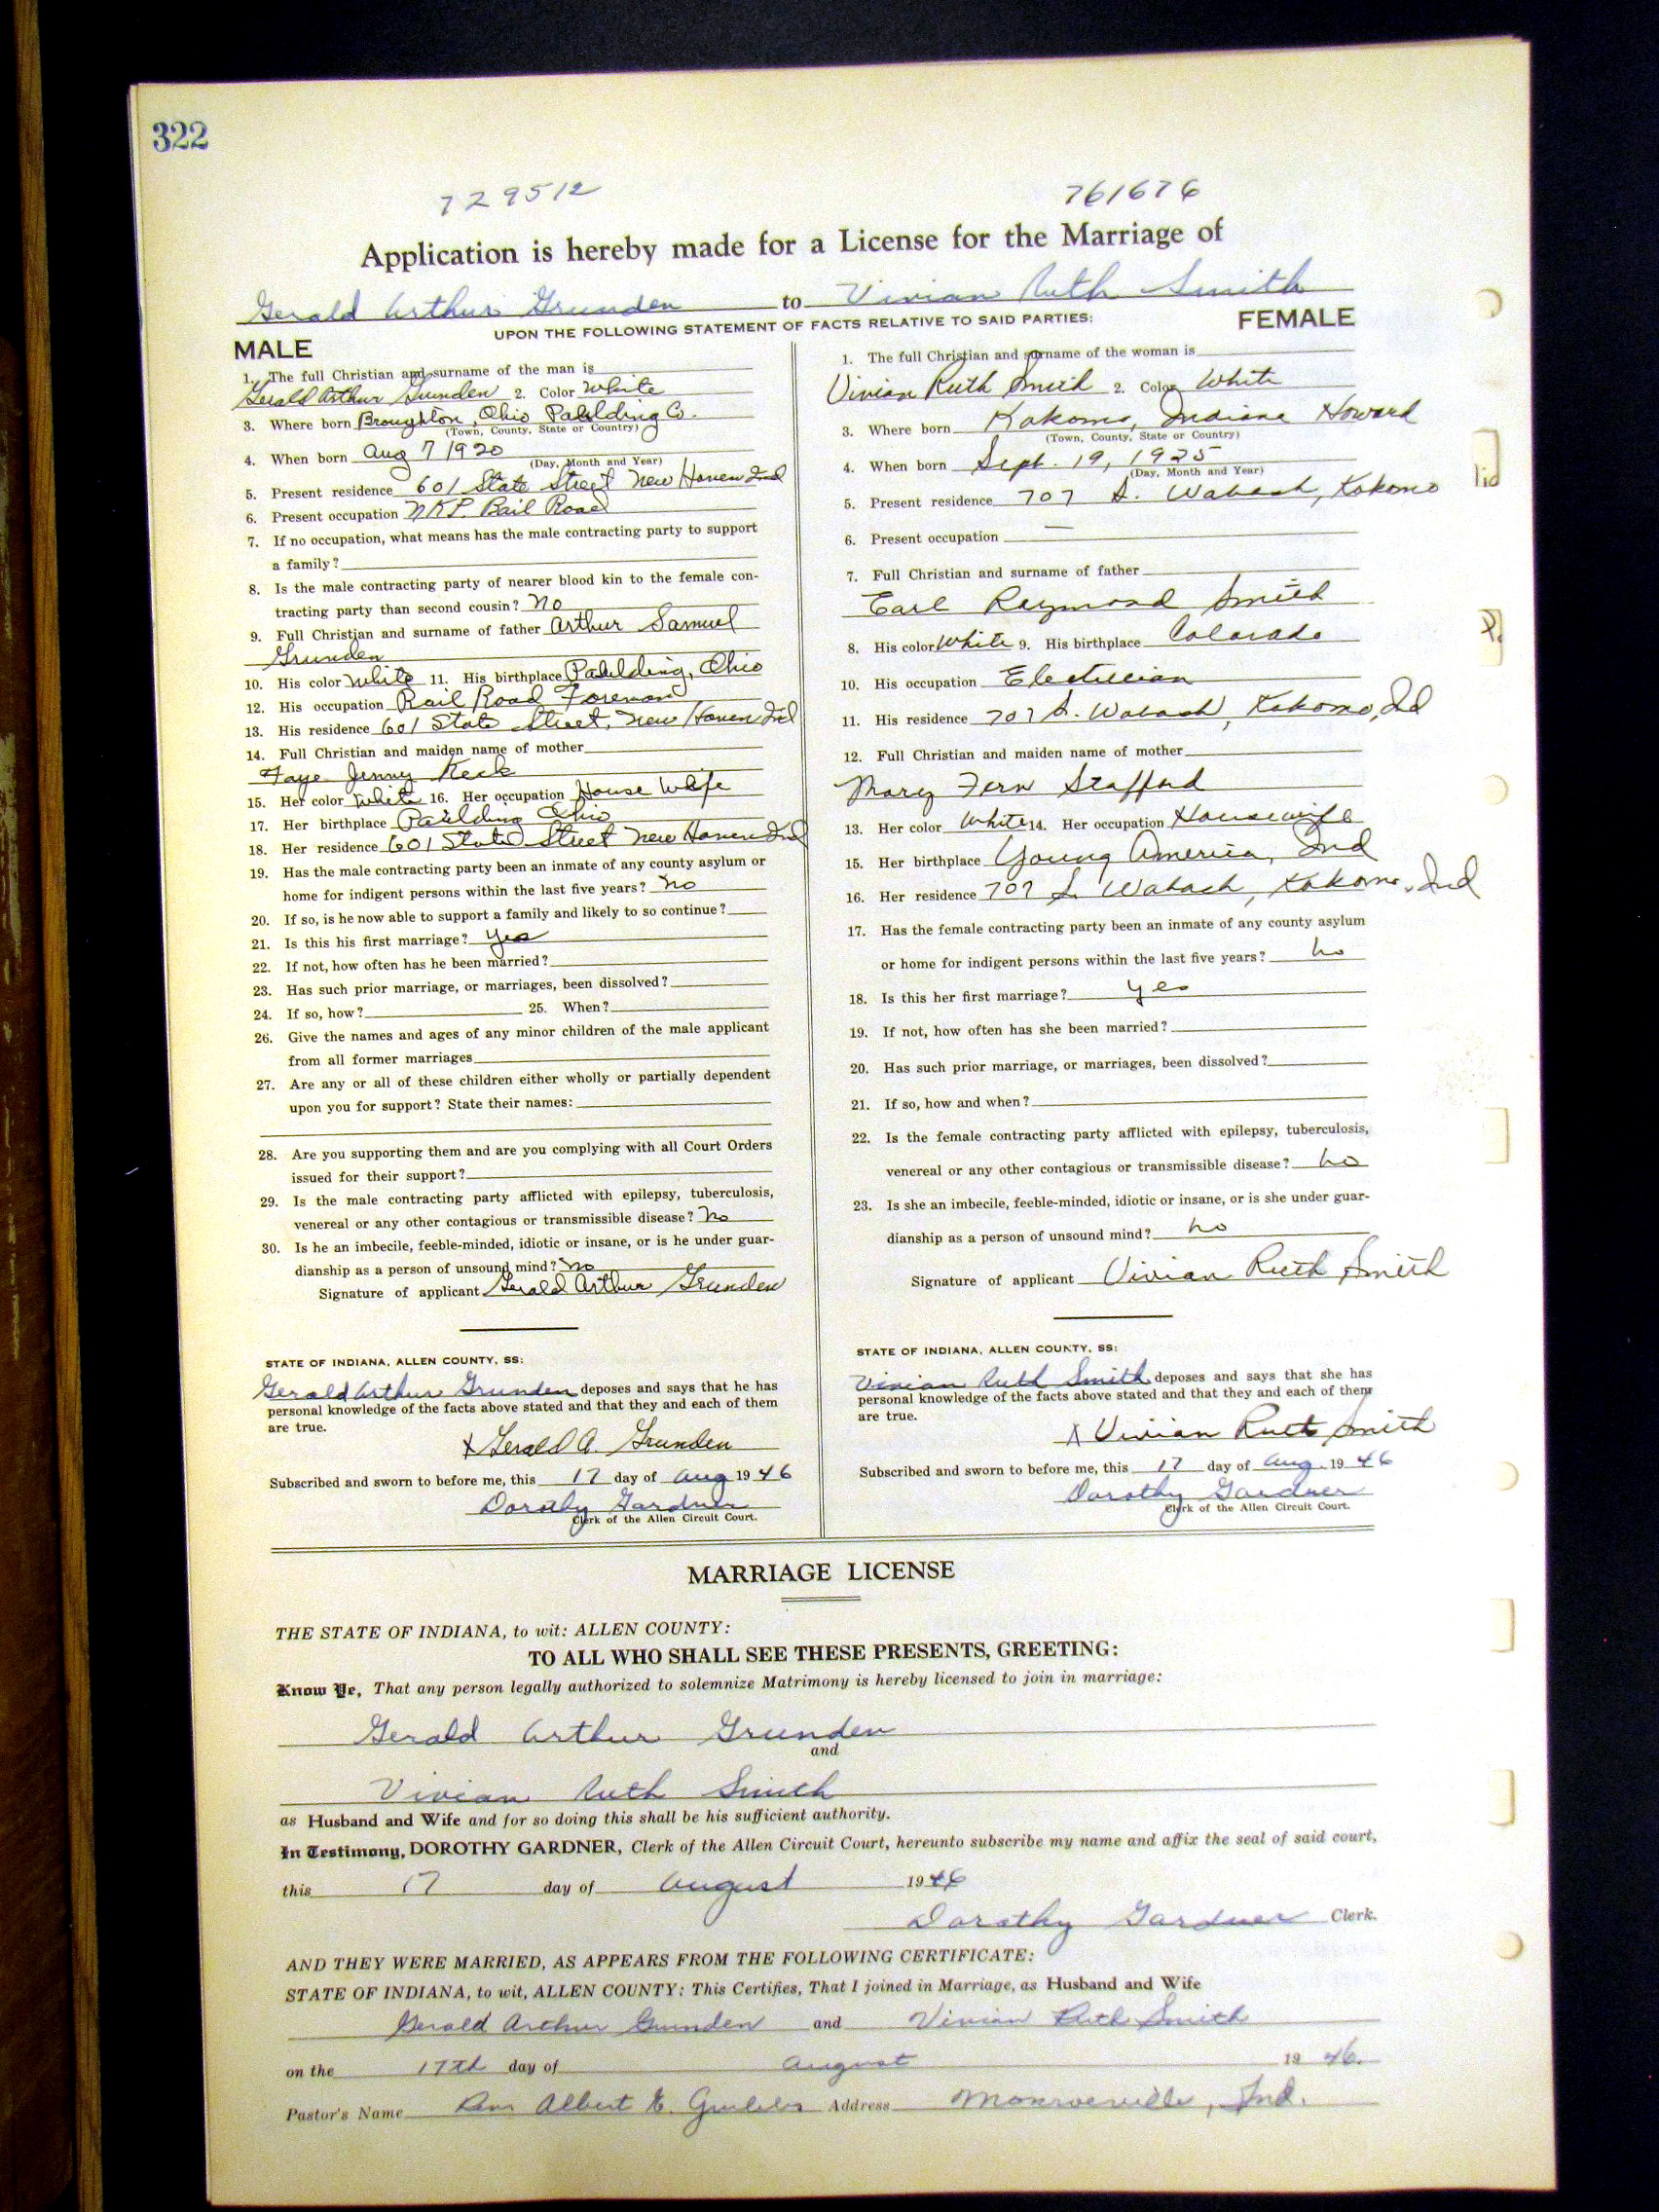 322
729512 761676
Application is hereby made for a License for the Marriage of
Gerald Arthur Grunden to Vivian Ruth Smith
UPON THE FOLLOWING STATEMENT OF FACTS RELATIVE TO SAID PARTIES:
MALE
1. The full Christian and surname of the man is
Gerald Arthur Grunden 2. Color White
3. Where born Broughton, Ohio Paulding Co.
(Town, County, State or Country)
4. When born Aug 7 1920
(Day, Month and Year)
5. Present residence 601 State Street New Haven Ind
6. Present occupation NKP. Rail Road
7. If no occupation, what means has the male contracting party to support
a family?
8. Is the male contracting party of nearer blood kin to the female con-
tracting party than second cousin? No
9. Full Christian and surname of father Arthur Samuel
Grunden
10. His color White 11. His birthplace Paulding, Ohio
12. His occupation Rail Road Foreman
13. His residence 601 State Street, New Haven Ind
14. Full Christian and maiden name of mother
Faye Jenny Keck
15. Her color White 16. Her occupation House Wife
17. Her birthplace Paulding Ohio
18. Her residence 601 State Street New Haven Ind
19. Has the male contracting party been an inmate of any county asylum or
home for indigent persons within the last five years? No
20. If so, is he now able to support a family and likely to so continue?
21. Is this his first marriage? Yes
22. If not, how often has he been married?
23. Has such prior marriage, or marriages, been dissolved?
24. If so, how? 25. When?
26. Give the names and ages of any minor children of the male applicant
from all former marriages
27. Are any or all of these children either wholly or partially dependent
upon you for support? State their names:
28. Are you supporting them and are you complying with all Court Orders
issued for their support?
29. Is the male contracting party afflicted with epilepsy, tuberculosis,
venereal or any other contagious or transmissible disease? No
30. Is he an imbecile, feeble-minded, idiotic or insane, or is he under guar-
dianship as a person of unsound mind? No
Signature of applicant Gerald Arthur Grunden
STATE OF INDIANA, ALLEN COUNTY, SS:
Gerald Arthur Grunden deposes and says that he has
personal knowledge of the facts above stated and that they and each of them
are true.
X Gerald A. Grunden
Subscribed and sworn to before me, this 17 day of Aug 1946
Dorothy Gardner
Clerk of the Allen Circuit Court.
FEMALE
1. The full Christian and surname of the woman is
Vivian Ruth Smith 2. Color White
3. Where born Kokomo, Indiana Howard
(Town, County, State or Country)
4. When born Sept. 19, 1925
(Day, Month and Year)
5. Present residence 707 S. Wabash, Kokomo
6. Present occupation —
7. Full Christian and surname of father
Earl Raymond Smith
8. His color White 9. His birthplace Colorado
10. His occupation Electrician
11. His residence 707 S. Wabash, Kokomo, Ind
12. Full Christian and maiden name of mother
Mary Fern Stafford
13. Her color White 14. Her occupation Housewife
15. Her birthplace Young America, Ind
16. Her residence 707 S. Wabash, Kokomo, Ind
17. Has the female contracting party been an inmate of any county asylum
or home for indigent persons within the last five years? no
18. Is this her first marriage? yes
19. If not, how often has she been married?
20. Has such prior marriage, or marriages, been dissolved?
21. If so, how and when?
22. Is the female contracting party afflicted with epilepsy, tuberculosis,
venereal or any other contagious or transmissible disease? no
23. Is she an imbecile, feeble-minded, idiotic or insane, or is she under guar-
dianship as a person of unsound mind? no
Signature of applicant Vivian Ruth Smith
STATE OF INDIANA, ALLEN COUNTY, SS:
Vivian Ruth Smith deposes and says that she has
personal knowledge of the facts above stated and that they and each of them
are true.
X Vivian Ruth Smith
Subscribed and sworn to before me, this 17 day of Aug. 1946
Dorothy Gardner
Clerk of the Allen Circuit Court.
MARRIAGE LICENSE
THE STATE OF INDIANA, to wit: ALLEN COUNTY:
TO ALL WHO SHALL SEE THESE PRESENTS, GREETING:
Know Ye, That any person legally authorized to solemnize Matrimony is hereby licensed to join in marriage:
Gerald Arthur Grunden
and
Vivian Ruth Smith
as Husband and Wife and for so doing this shall be his sufficient authority.
In Testimony, DOROTHY GARDNER, Clerk of the Allen Circuit Court, hereunto subscribe my name and affix the seal of said court,
this 17 day of August 1946
Dorothy Gardner Clerk.
AND THEY WERE MARRIED, AS APPEARS FROM THE FOLLOWING CERTIFICATE:
STATE OF INDIANA, to wit, ALLEN COUNTY: This Certifies, That I joined in Marriage, as Husband and Wife
Gerald Arthur Grunden and Vivian Ruth Smith
on the 17th day of August 1946.
Pastor's Name Albert E. Address Monroeville, Ind.